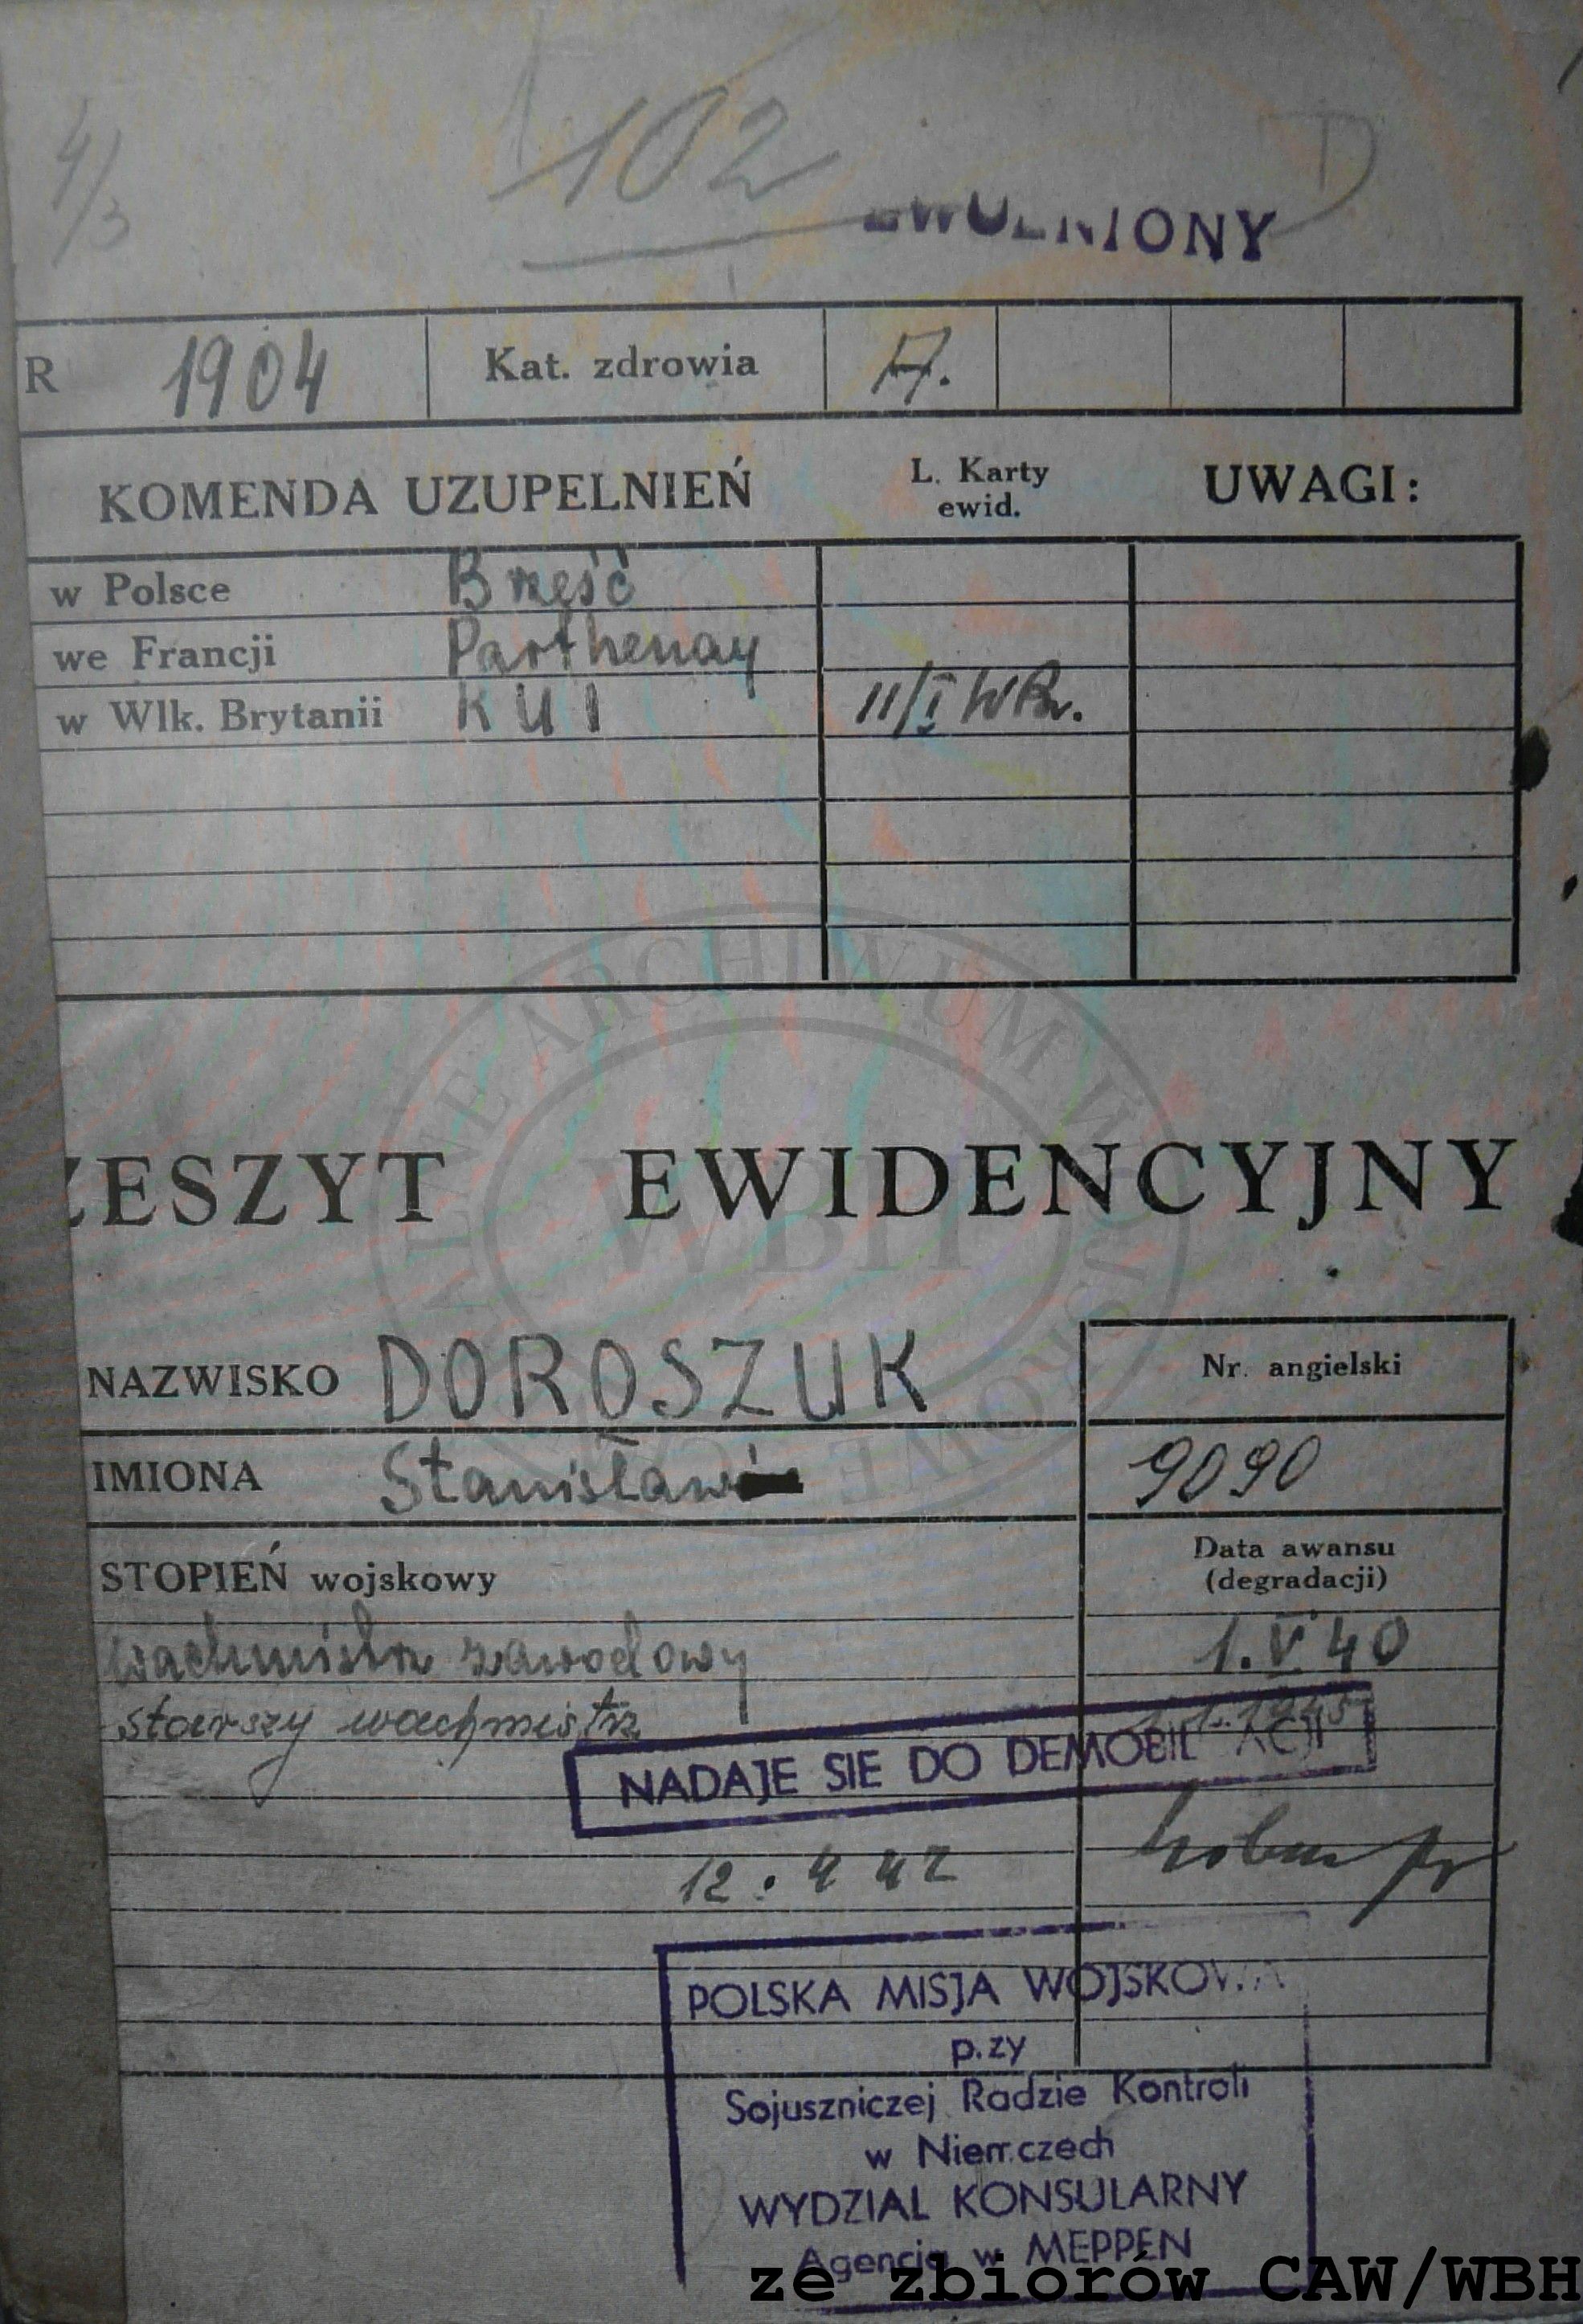 4/3
102
D
ZWOLNIONY
R 1904 Kat. zdrowia A.
KOMENDA UZUPELNIEŃ L. Karty ewid. UWAGI:
w Polsce Brześć
we Francji Parthenay
w Wlk. Brytanii K U 1 11/I WBr.
ZESZYT EWIDENCYJNY
WBH
NAZWISKO DOROSZUK Nr. angielski
IMIONA Stanisław 9090
STOPIEŃ wojskowy Data awansu (degradacji)
wachmistrz zawodowy 1.V 40
starszy wachmistrz 1.1.1945
NADAJE SIE DO DEMOBIL ACJI
12.4 47
POLSKA MISJA WOJSKOWA
p.zy
Sojuszniczej Radzie Kontroli
w Niemczech
WYDZIAL KONSULARNY
Agencja w MEPPEN
ze zbiorów CAW/WBH